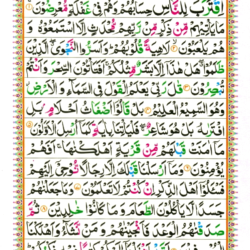 اِقْتَرَبَ لِلنَّاسِ حِسَابُهُمْ وَهُمْ فِيْ غَفْلَةٍ مُّعْرِضُوْنَ
مَا يَاْتِيْهِمْ مِّنْ ذِكْرٍ مِّنْ رَّبِّهِمْ مُّحْدَثٍ اِلَّا اسْتَمَعُوْهُ وَ
هُمْ يَلْعَبُوْنَ لَاهِيَةً قُلُوْبُهُمْ وَاَسَرُّوا النَّجْوَى الَّذِيْنَ
ظَلَمُوْا هَلْ هٰذَا اِلَّا بَشَرٌ مِّثْلُكُمْ اَفَتَاْتُوْنَ السِّحْرَ وَاَنْتُمْ
تُبْصِرُوْنَ قٰلَ رَبِّيْ يَعْلَمُ الْقَوْلَ فِي السَّمَآءِ وَالْاَرْضِ
وَهُوَ السَّمِيْعُ الْعَلِيْمُ بَلْ قَالُوْٓا اَضْغَاثُ اَحْلَامٍ بَلِ
افْتَرٰىهُ بَلْ هُوَ شَاعِرٌ فَلْيَاْتِنَا بِاٰيَةٍ كَمَآ اُرْسِلَ الْاَوَّلُوْنَ
مَآ اٰمَنَتْ قَبْلَهُمْ مِّنْ قَرْيَةٍ اَهْلَكْنٰهَا اَفَهُمْ
يُؤْمِنُوْنَ وَمَآ اَرْسَلْنَا قَبْلَكَ اِلَّا رِجَالًا نُّوْحِيْٓ اِلَيْهِمْ
فَسْـَٔلُوْٓا اَهْلَ الذِّكْرِ اِنْ كُنْتُمْ لَا تَعْلَمُوْنَ وَمَا جَعَلْنٰهُمْ
جَسَدًا لَّا يَاْكُلُوْنَ الطَّعَامَ وَمَا كَانُوْا خٰلِدِيْنَ ثُمَّ
صَدَقْنٰهُمُ الْوَعْدَ فَاَنْجَيْنٰهُمْ وَمَنْ نَّشَآءُ وَاَهْلَكْنَا